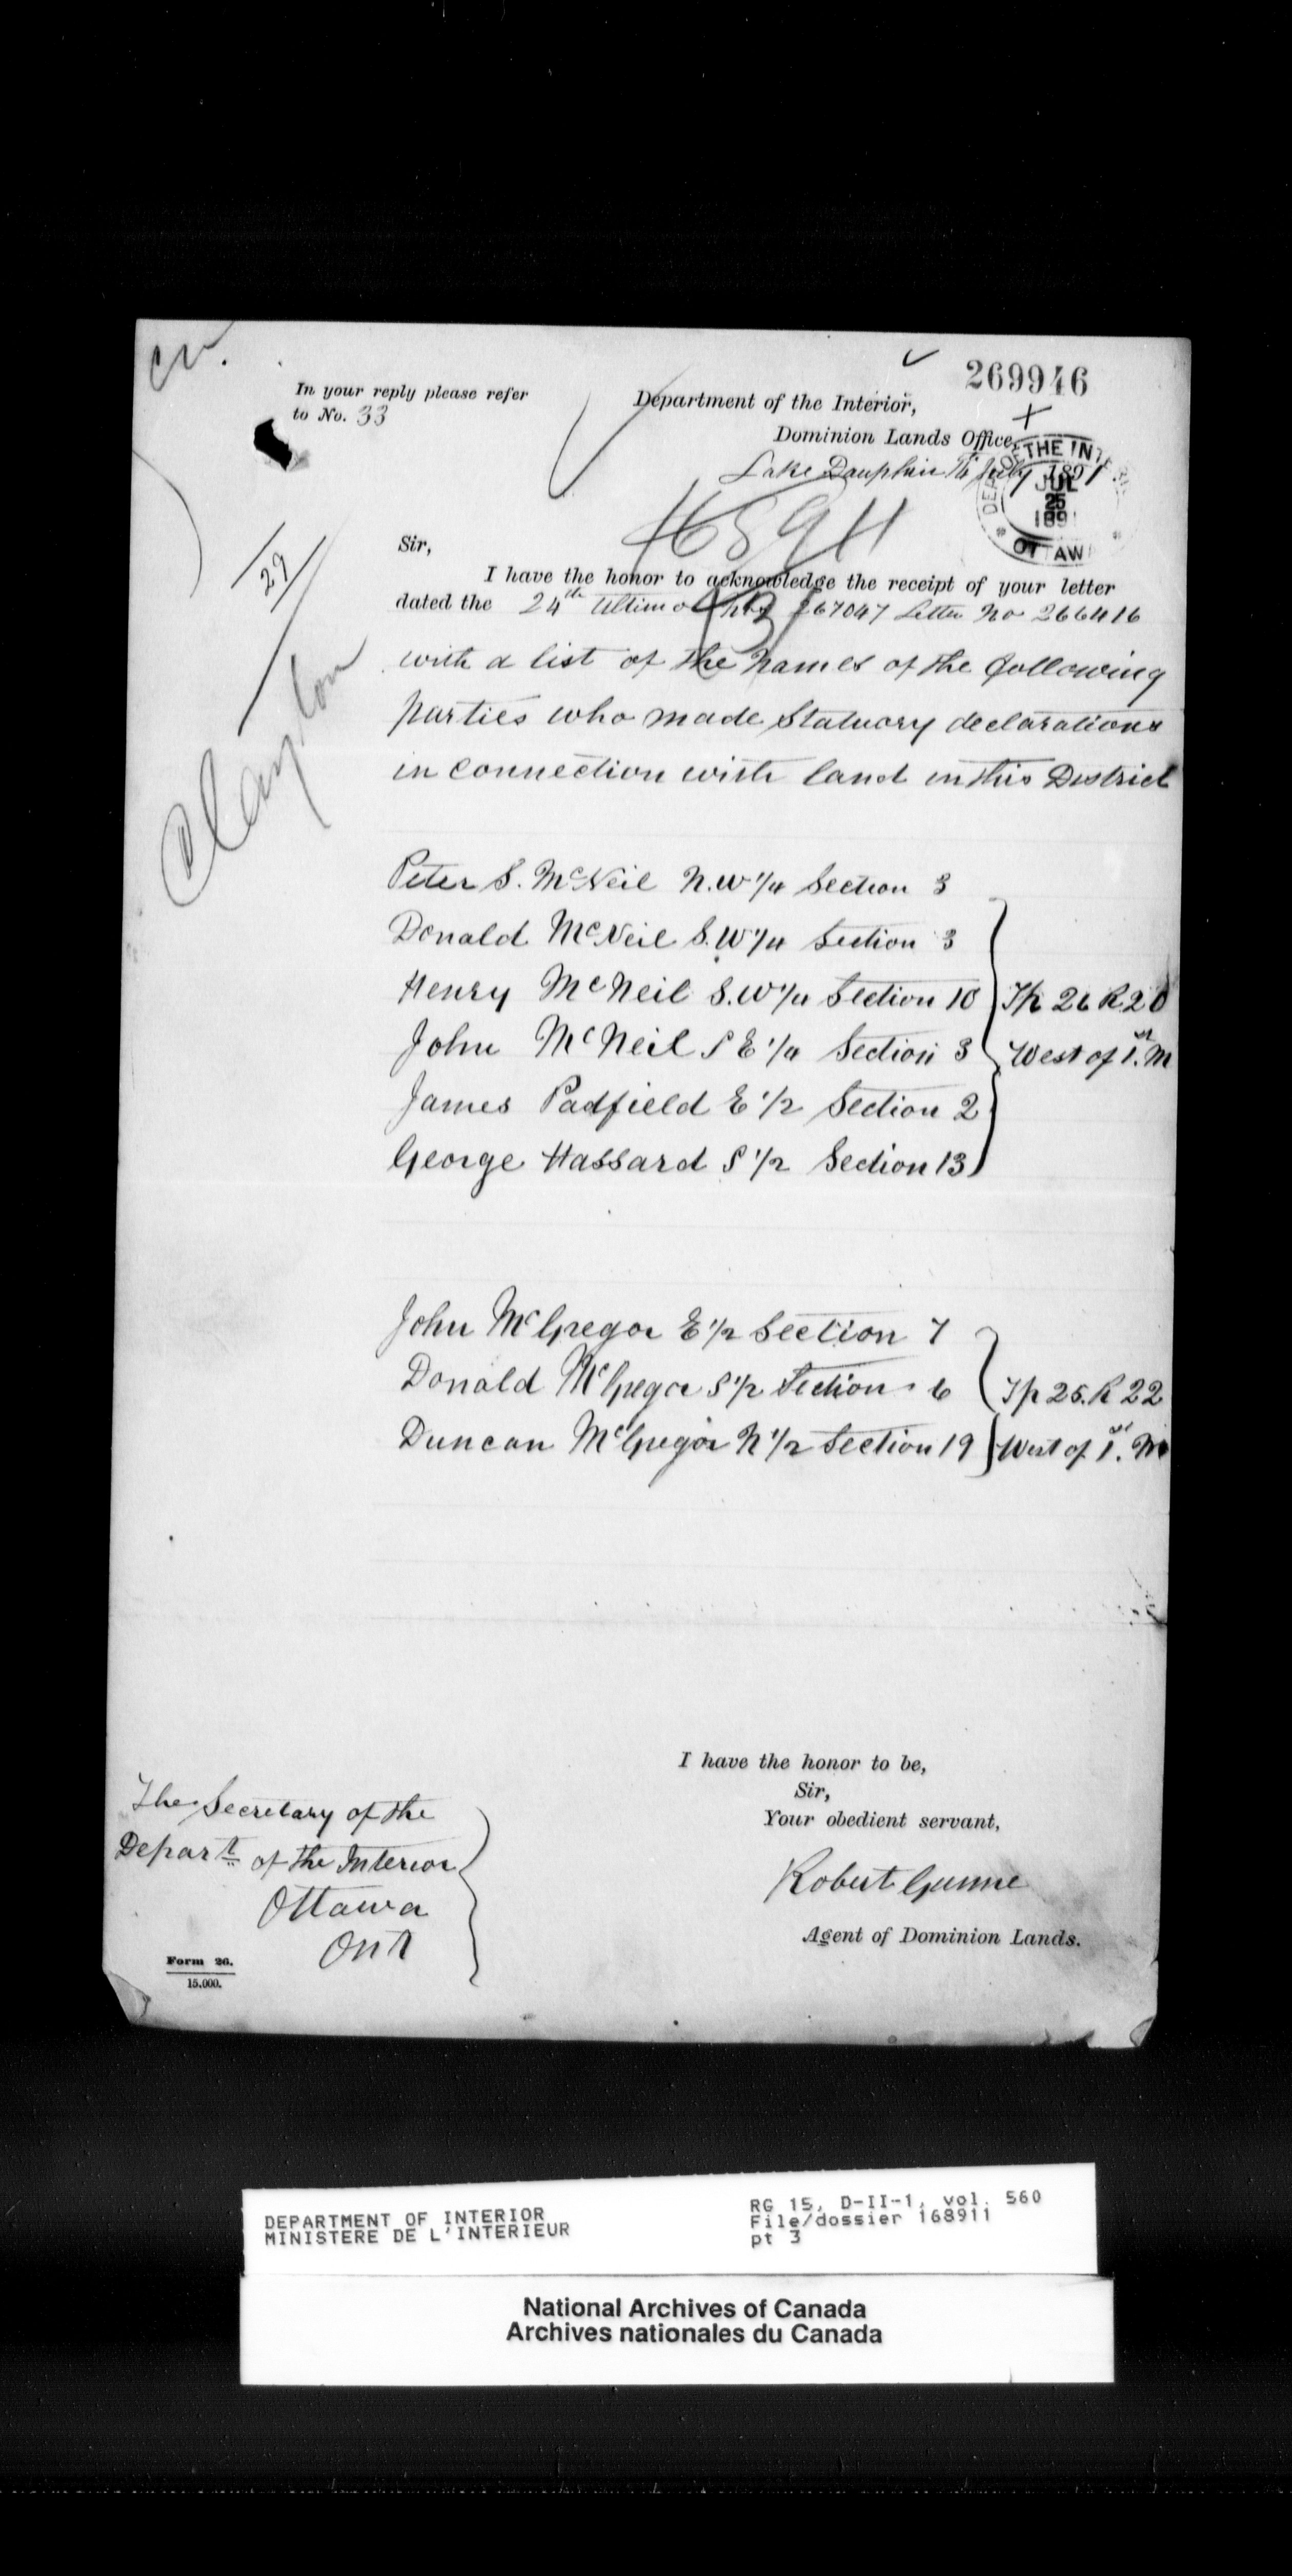 cw.
269946
In your reply please refer
to No. 33
Department of the Interior,
Dominion Lands Office,
Lake Dauphin 7th July 1891
THE INT
JUL
25
189
OTTAW
16891
(3)
29
Clayton
Sir,
I have the honor to acknowledge the receipt of your letter
dated the 24th Ultimo 267047 Letter No 266416
with a list of the names of the following
parties who made Statuory declarations
in connection with land in this District
Peter S. McNeil N.W 1/4 Section 3
Donald McNeil S.W 1/4 Section 3
Henry McNeil S.W 1/4 Section 10
John McNeil S E 1/4 Section 3
James Padfield E 1/2 Section 2
George Hassard S 1/2 Section 13
Tp 26 R 20
West of 1st. M
John McGregor E 1/2 Section 7
Donald McGregor S 1/2 Section 6
Duncan McGregor N 1/2 Section 19
Tp 25. R 22
West of 1st. M
I have the honor to be,
Sir,
Your obedient servant,
Robert Gunne
Agent of Dominion Lands.
The Secretary of the
Depart of the Interior
Ottawa
Ont
Form 26.
15.000.
DEPARTMENT OF INTERIOR
MINISTERE DE L'INTERIEUR
RG 15, D-II-1, vol. 560
File/dossier 168911
pt 3
National Archives of Canada
Archives nationales du Canada